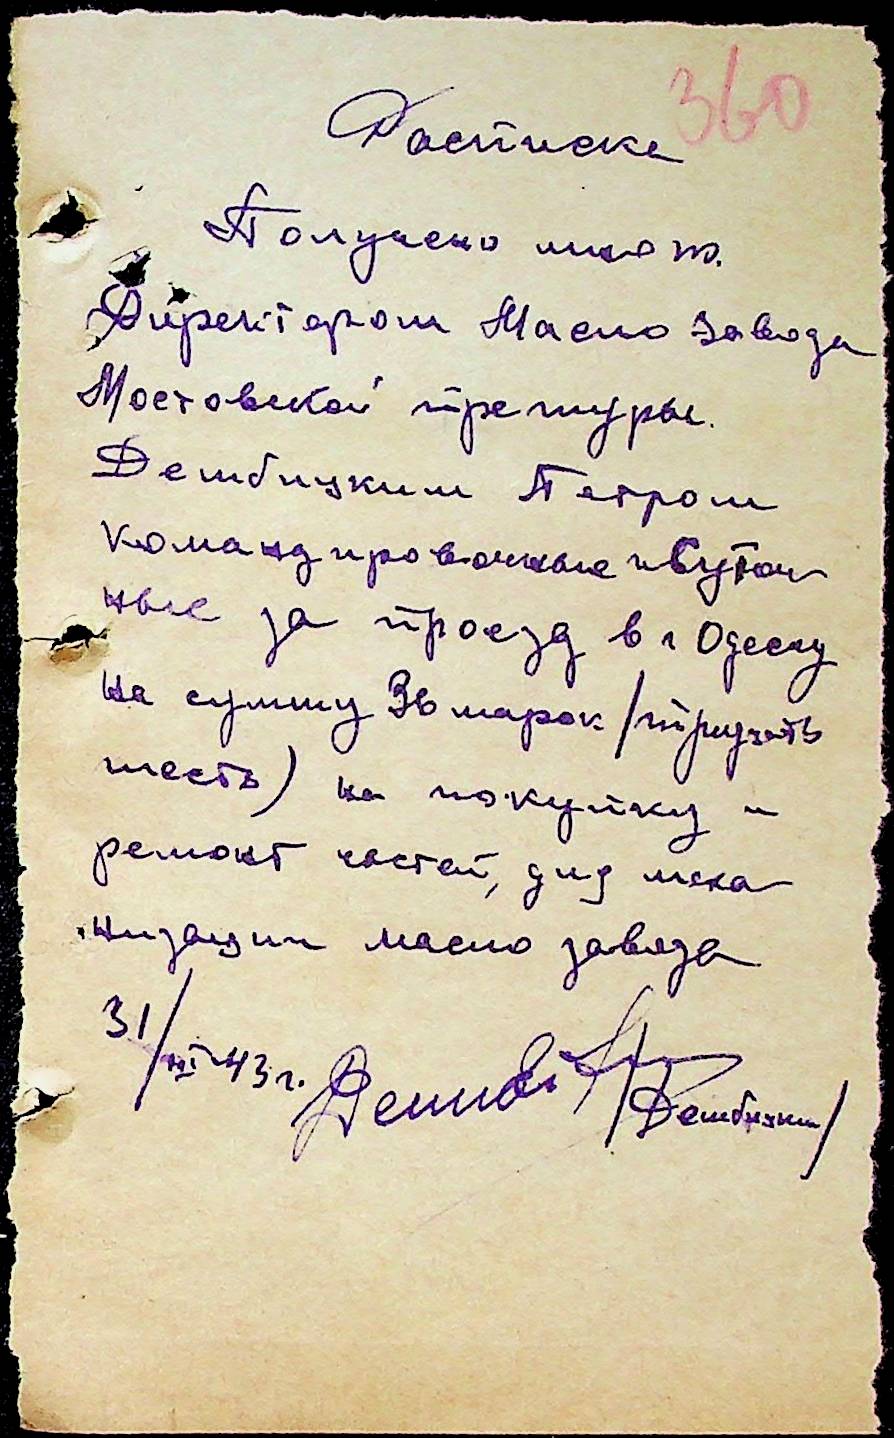 360
Расписка
Получено мною
Директором Масло завода
Мостовской претуры.
Дембицким Петром
командировочные и суточ
ные за проезд в г Одессу
на сумму 36 марок /тридцать
шесть) на покупку и
ремонт частей, для меха
низации масло завода
31/III-43 г. /Дембицкий/